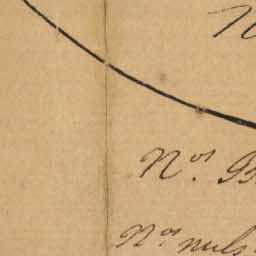 N
Nos. B
Nos nuls